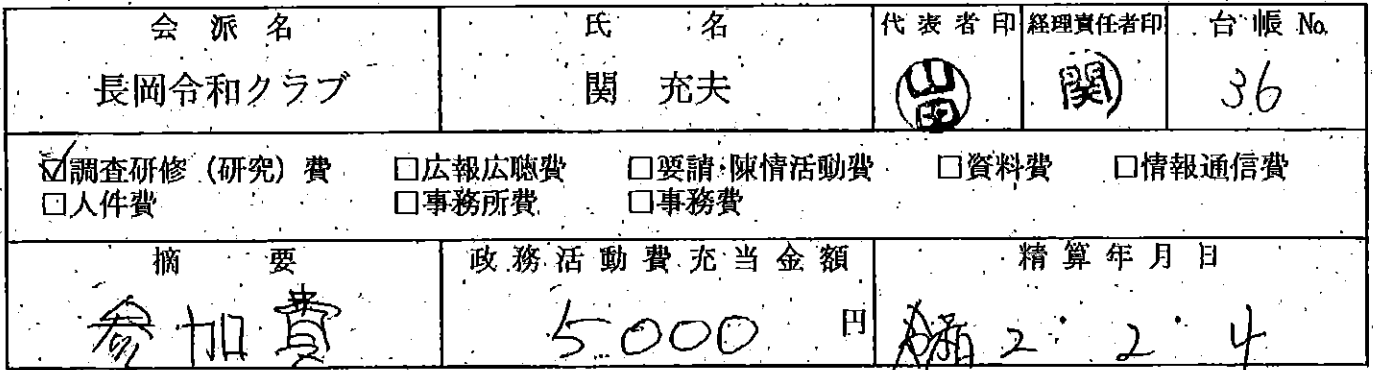 会派名 氏名 代表者印 経理責任者印 台帳 No.
長岡令和クラブ 関 充夫 山田 関 36
☑調査研修（研究）費 □広報広聴費 □要請・陳情活動費 □資料費 □情報通信費
□人件費 □事務所費 □事務費
摘要 政務活動費充当金額 精算年月日
参加費 5000 円 2・2・4